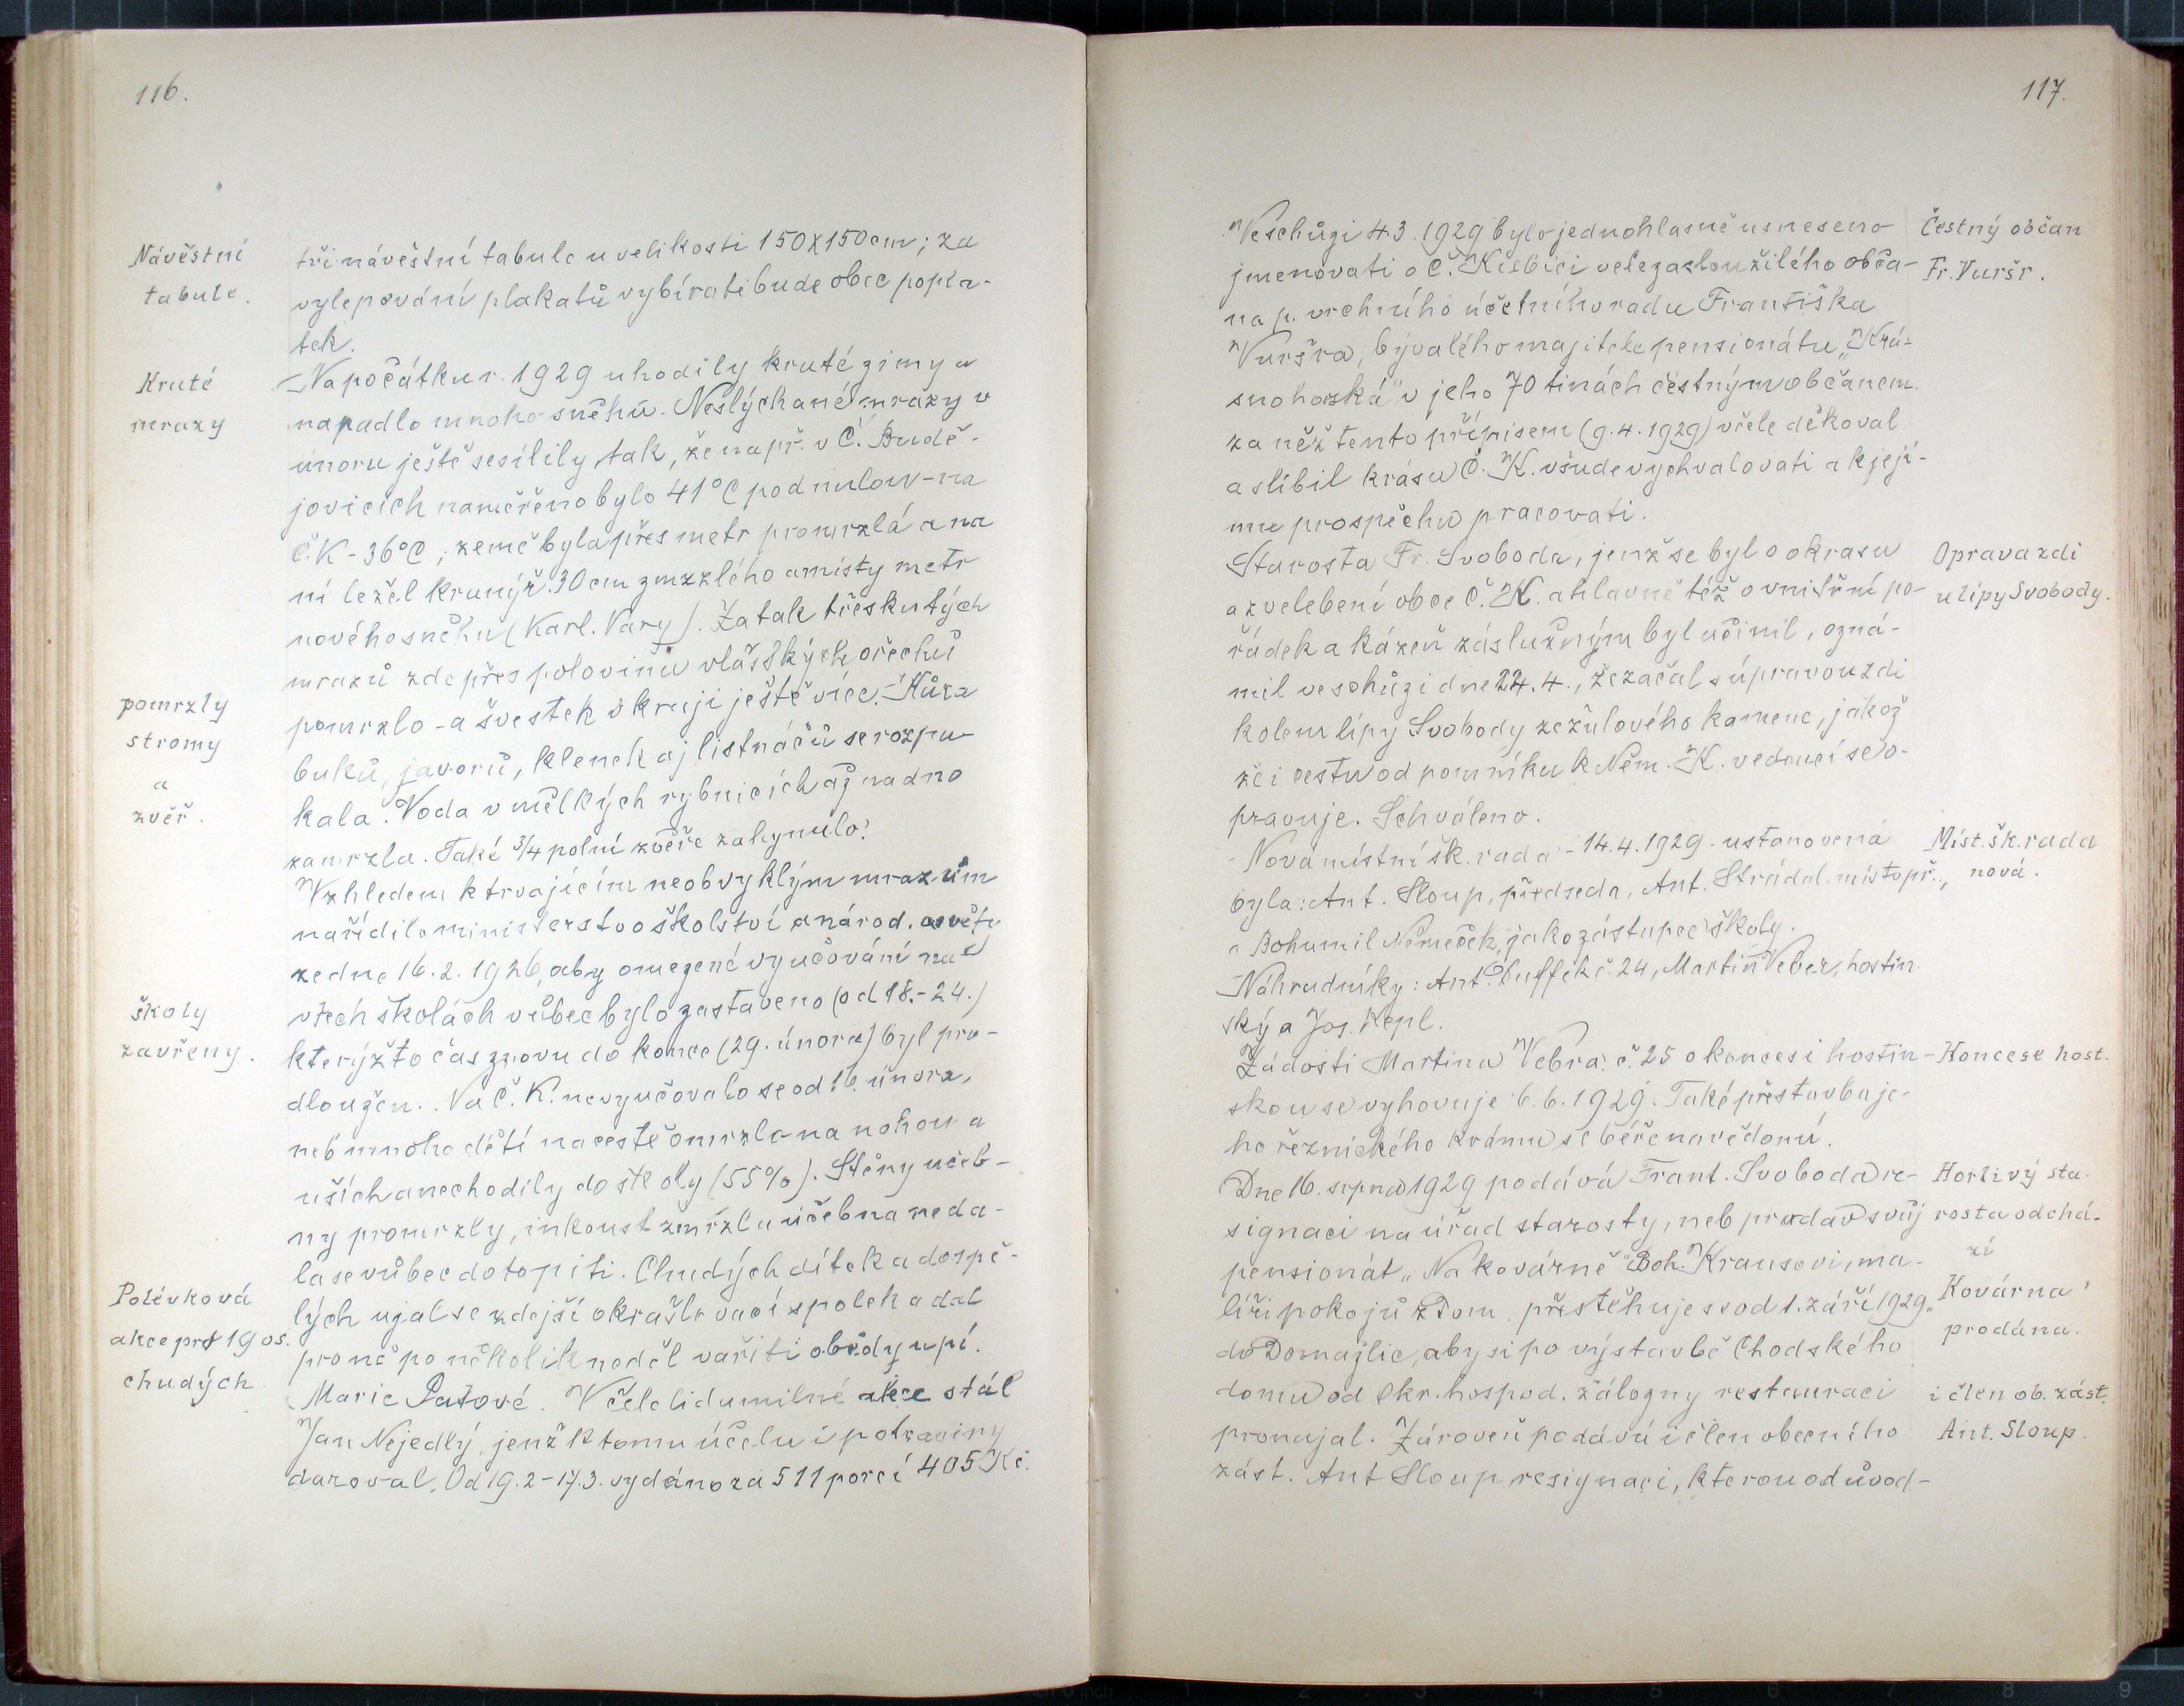 116.
Návěstní
tabule.
tři návěstní tabule u velikosti 150x150 cm; za
vylepování plakatů vybírati bude obec popla-
tek.
Kruté
mrazy
Na počátku r. 1929 uhodily kruté zimy a
napadlo mnoho sněhu. Neslýchané mrazy v
únoru ještě sesílily tak, že např. v Č. Budě-
jovicích naměřeno bylo 41°C pod nulou - na
Č. K - 36°C; země byla přes metr promrzlá a na
ní ležel krunýř 30 cm zmrzlého a místy metr
nového sněhu (Karl. Vary). Za tak třeskutých
mrazů zde přes polovinu vlašských ořechů
pomrzly
stromy
a
zvěř.
pomrzlo - a švestek v kraji ještě více. Kůra
buků, javorů, klenek aj listnáčů se rozpu-
kala. Voda v mělkých rybnicích až na dno
zamrzla. Také 3/4 polní zvěře zahynulo!
Vzhledem k trvajícím neobvyklým mrazům
nařídilo ministerstvo školství a národ. osvěty
ze dne 16.2.1926, aby omezené vyučování na
školy
zavřeny.
všech školách vůbec bylo zastaveno (od 18.-24.)
kterýžto čas znovu do konce (29. února) byl pro-
dloužen. Na Č. K. nevyučovalo se od 16. února,
neb mnoho dětí na cestě omrzlo na nohou a
uších a nechodily do školy (55%). Stěny učeb-
ny promrzly, inkoust zmrzl a učebna neda-
la se vůbec dotopiti. Chudých dítek a dospě-
Polévková
akce pro 19 os.
chudých
lých ujal se zdejší okrašlovací spolek a dal
pro ně po několik neděl vařiti obědy u pí.
Marie Paťové. V čele lidumilné akce stál
Jan Nejedlý, jenž k tomu účelu i potraviny
daroval. Od 19.2-17.3. vydáno za 511 porcí 405 Kč.
117.
Ve schůzi 4.3.1929 bylo jednohlasně usneseno
jmenovati o Č. Kubici velezasloužilého obča-
na p. vrchního účetního radu Františka
Vuršra, bývalého majitele pensionátu "Krá-
snohorská" v jeho 70tinách čestným občanem.
za něž tento přípisem (9.4.1929) vřele děkoval
a slíbil krásu Č. K. všude vychvalovati a k její-
mu prospěchu pracovati.
Čestný občan
Fr. Vuršr.
Starosta Fr. Svoboda, jenž se byl o okrasu
a zvelebení obce Č. K. a hlavně též o vnitřní po-
řádek a kázeň záslužným byl učinil, ozná-
mil ve schůzi dne 22.4., že začal s úpravou zdi
kolem lípy Svobody ze žulového kamene, jakož
že i cestu od pomníku k Něm. K. vedoucí se o-
pravuje. Schváleno.
Oprava zdi
u lípy Svobody.
Nová místní šk. rada - 14.4.1929 - ustanovená
byla: Ant. Sloup, předseda, Ant. Strádal. místopř.,
a Bohumil Němeček, jako zástupce školy.
Náhradníky: Ant. Buffek č. 24, Martin Veber, hostin-
ský a Jos. Kepl.
Míst. šk. rada
nová.
Žádosti Martina Vebra č. 25 o koncesi hostin-
skou se vyhovuje 6.6.1929. Také přestavba je-
ho řeznického krámu se béře na vědomí.
Koncese host.
Dne 16. srpna 1929 podává Frant. Svoboda re-
signaci na úřad starosty, neb prodav svůj
pensionát "Na kovárně" Boh. Krausovi, ma-
líři pokojů z Dom. přestěhuje se od 1. září 1929
do Domažlic, aby si po výstavbě Chodského
domu od Okr. hospod. záložny restauraci
pronajal. Zároveň podává i člen obecního
zást. Ant Sloup resignaci, kterou odůvod-
Horlivý sta-
rosta odchá-
zí
"Kovárna"
prodána.
i člen ob. zást.
Ant. Sloup.